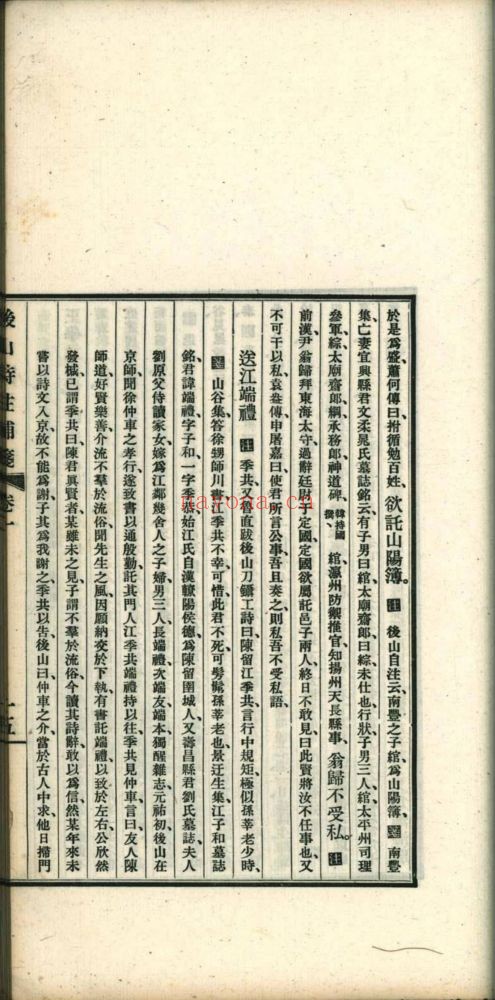 於是爲盛、蕭何傳曰、拊循勉百姓、欲託山陽簿。注 後山自注云、南豐之子綰爲山陽簿、箋 南豐
集亡妻宜興縣君文柔晁氏墓誌銘云、有子男曰綰太廟齋郎、曰綜未仕也、行狀子男三人、綰太平州司理
參軍、綜太廟齋郎、綱承務郎、神道碑、韓持國撰、綰瀛州防禦推官、知揚州天長縣事、翁歸不受私。注
前漢尹翁歸拜東海太守、過辭廷尉于定國、定國欲屬託邑子兩人、終日不敢見、曰此賢將、汝不任事也、又
不可干以私、袁盎傳、申屠嘉曰、使君所言公事、吾且奏之、則私、吾不受私語、
送江端禮 注 季共、又魯直跋後山刀鑷工詩曰、陳留江季共、言行中規矩、極似孫莘老少時、
箋 山谷集答徐甥師川書、江季共不幸可惜、此君不死、可髣髴孫莘老也、景迂生集江子和墓誌
銘、君諱端禮、字子和、一字季恭、始江氏自漢轑陽侯德、爲陳留圉城人、又壽昌縣君劉氏墓誌、夫人
劉原父侍讀家女、嫁爲江鄰幾舍人之子婦、男三人、長端禮、次端友、端本、獨醒雜志、元祐初、後山在
京師、聞徐仲車之孝行、遂致書以通殷勤、託其門人江季共端禮持以往、季共見仲車、言曰、友人陳
師道好賢樂善、介流不羣於流俗、聞先生之風、因願納交於下執、有書託端禮以致於左右、公欣然
發椷、已謂季共曰、陳君眞賢者、某雖未之見、子謂不羣於流俗、今讀其詩辭、敢以爲信然、某年來未
嘗以詩文入京、故不能爲謝、子其爲我謝之、季共以告後山曰、仲車之介、當於古人中求、他日掃門
後山詩注補箋 卷一
十五
nayona.cn